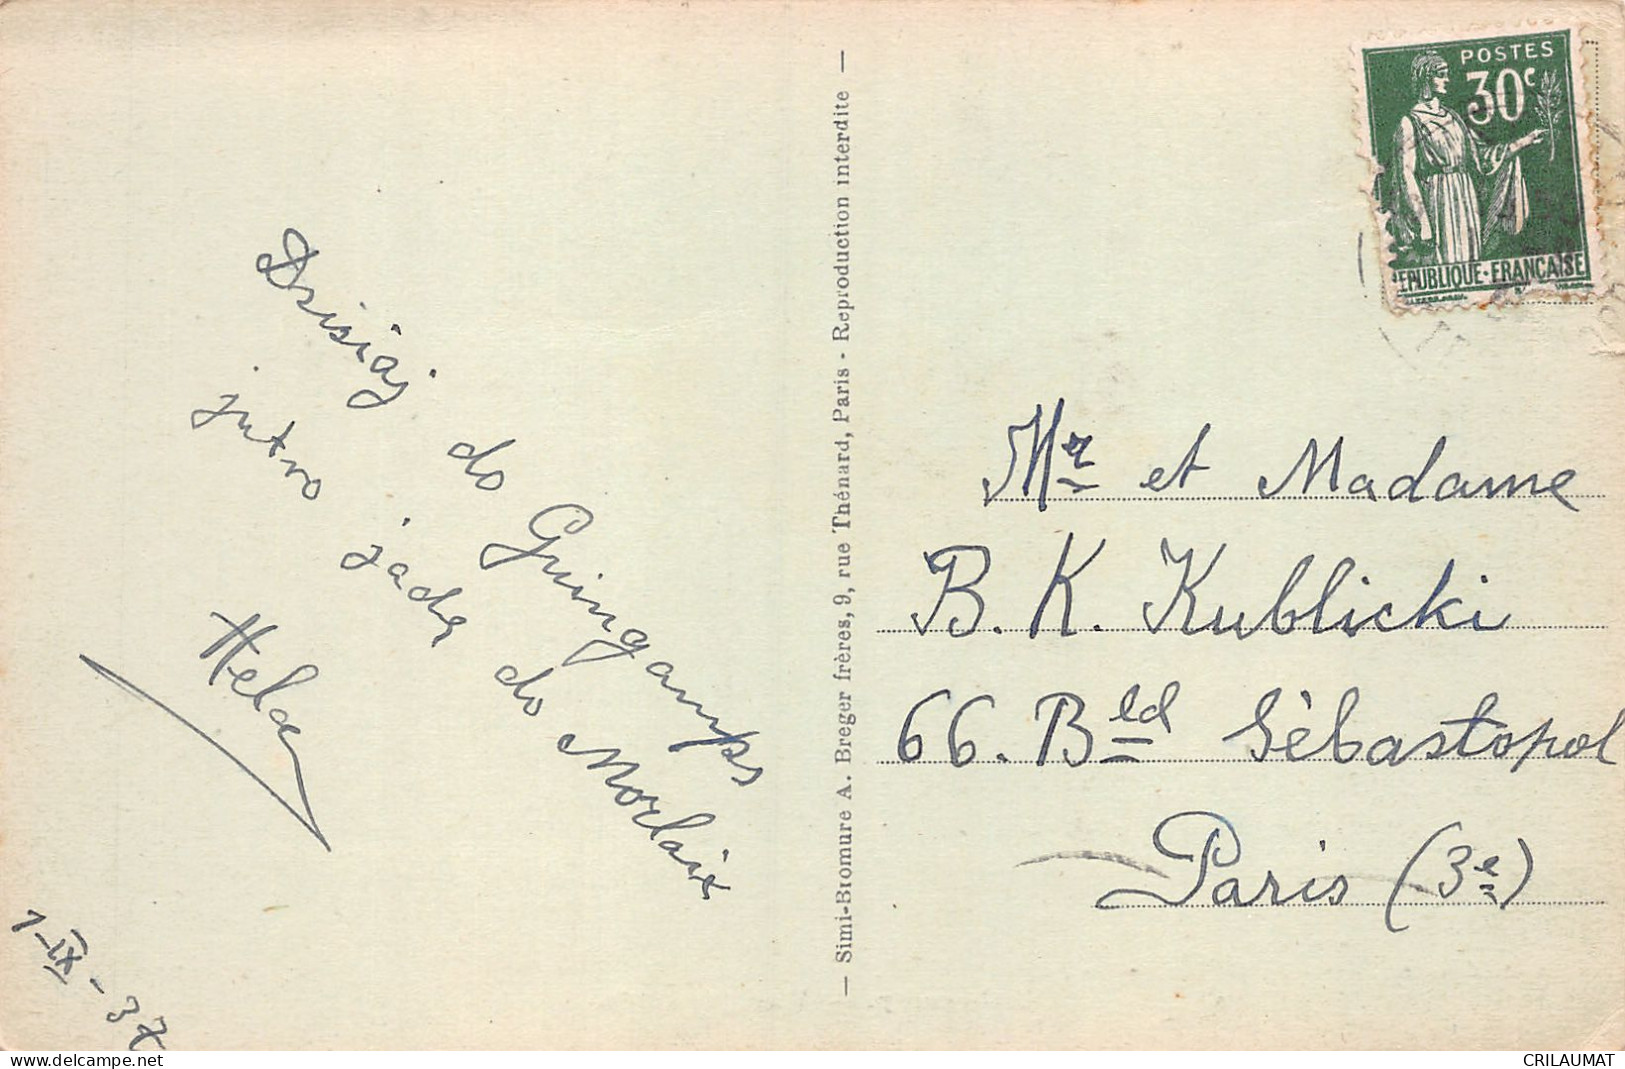 Dzisiaj do Guingamps
jutro jadę do Morlaix
Hela
1-IX-37
— Simi-Bromure A. Breger frères, 9, rue Thénard, Paris - Reproduction interdite —
POSTES
30c
REPUBLIQUE·FRANÇAISE
Mr et Madame
B. K. Kublicki
66. Bld Sébastopol
Paris (3e)
www.delcampe.net
CRILAUMAT